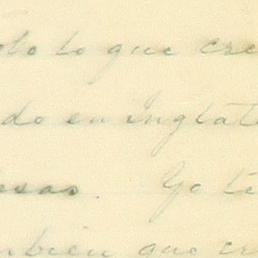 todo lo que cre
do en Inglate
esas. Yo te
ambien que cr